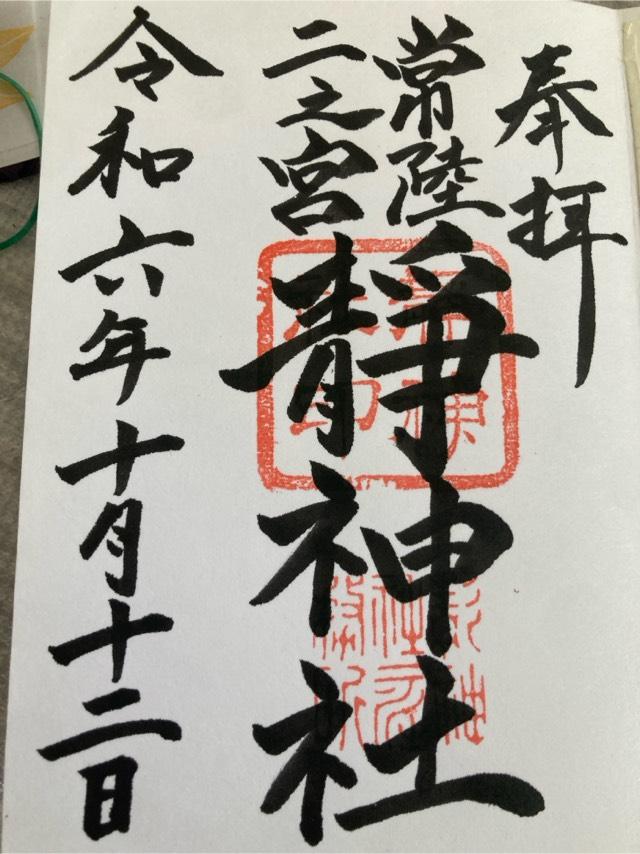 奉拝
常陸
二之宮
靜神社
令和六年十月十二日